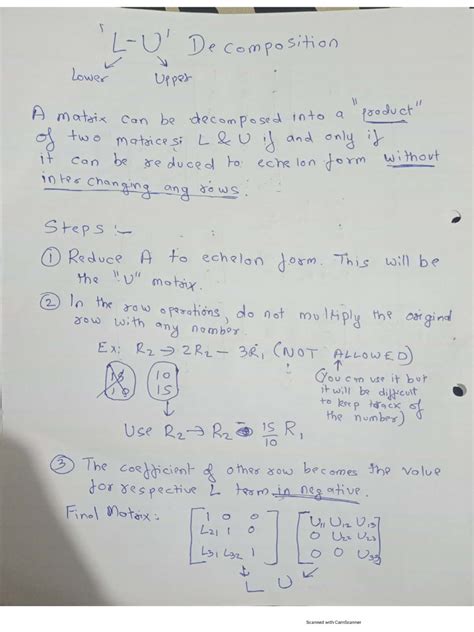 'L-U' Decomposition
Lower Upper
A matrix can be decomposed into a "product"
of two matrices: L & U if and only if
it can be reduced to echelon form without
interchanging any rows.
Steps :-
① Reduce A to echelon form. This will be
the "U" matrix.
② In the row operations, do not multiply the original
row with any number.
Ex: R2 → 2R2 - 3R1 (NOT ALLOWED)
10
15
(You can use it but
it will be difficult
to keep track of
the number)
Use R2 → R2 - 15/10 R1
③ The coefficient of other row becomes the value
for respective L term in negative.
Final Matrix:
1 0 0 U11 U12 U13
L21 1 0 0 U22 U23
L31 L32 1 0 0 U33
L U
Scanned with CamScanner